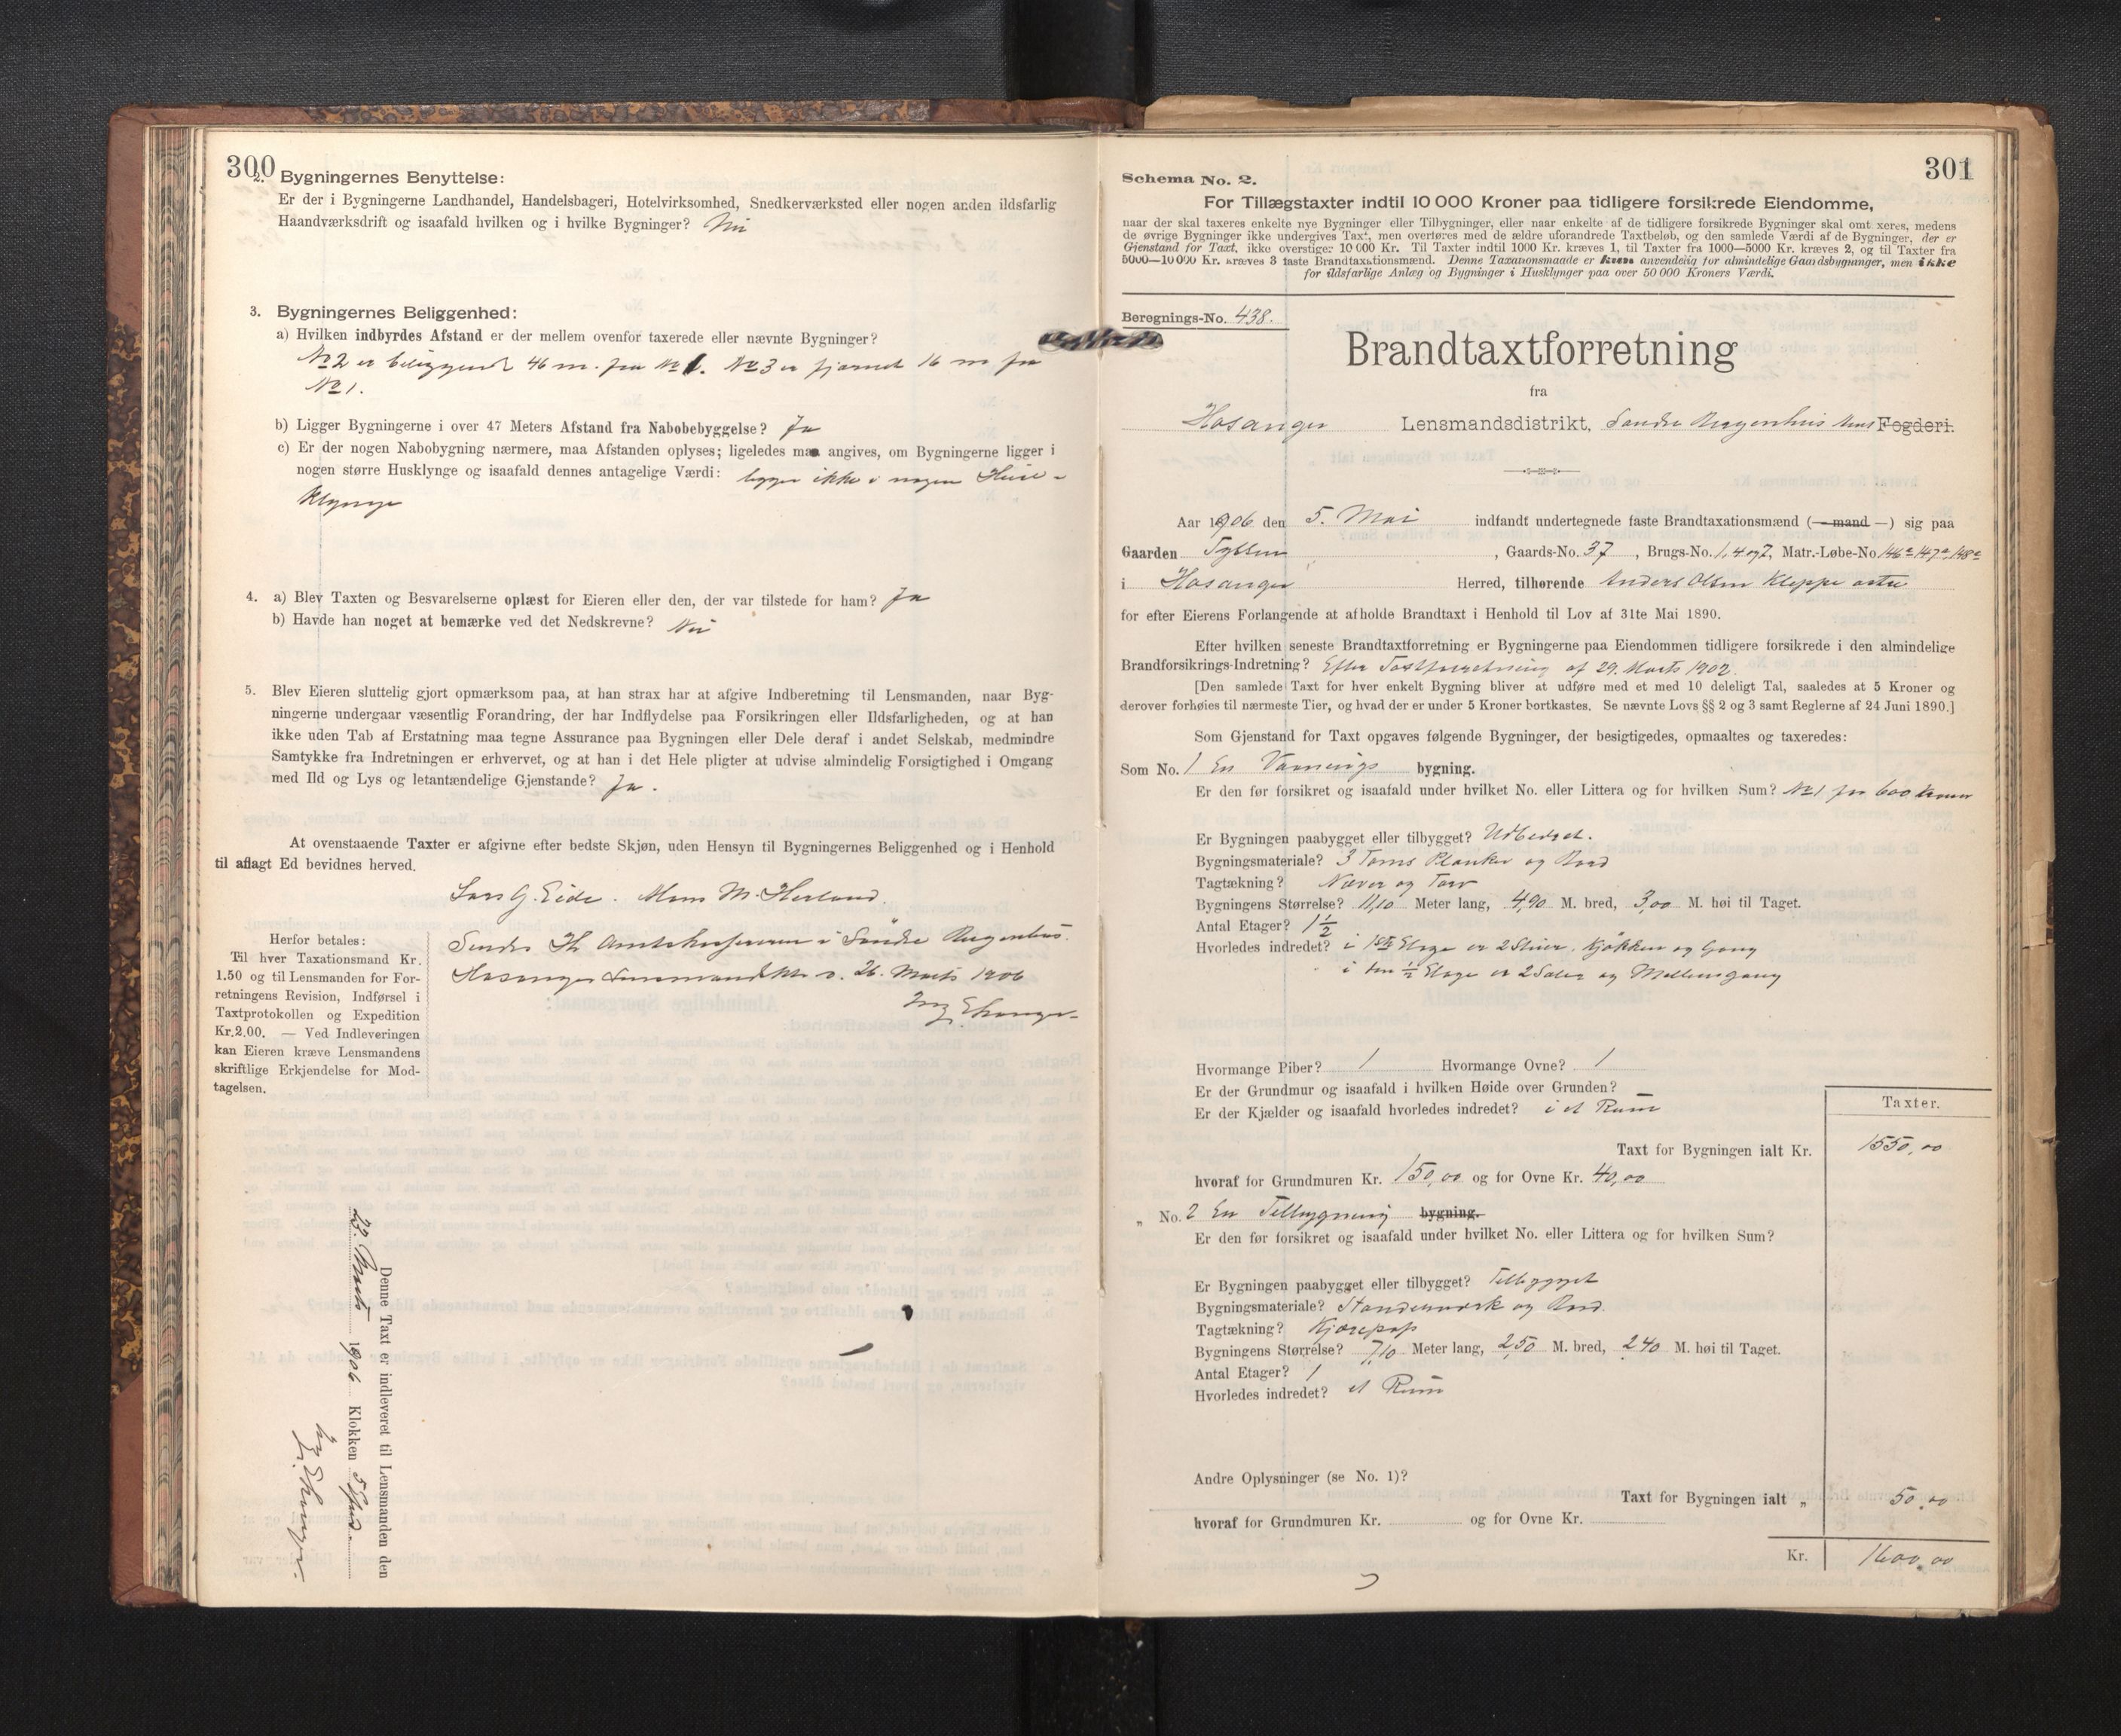 300
2. Bygningernes Benyttelse:
Er der i Bygningerne Landhandel, Handelsbageri, Hotelvirksomhed, Snedkerværksted eller nogen anden ildsfarlig
Haandværksdrift og isaafald hvilken og i hvilke Bygninger? Nei
3. Bygningernes Beliggenhed:
a) Hvilken indbyrdes Afstand er der mellem ovenfor taxerede eller nævnte Bygninger?
No 2 er beliggende 46 m. fra No 1. No 3 er fjærnet 16 m fra
No 1.
b) Ligger Bygningerne i over 47 Meters Afstand fra Nabobebyggelse? Ja
c) Er der nogen Nabobygning nærmere, maa Afstanden oplyses; ligeledes maa angives, om Bygningerne ligger i
nogen større Husklynge og isaafald dennes antagelige Værdi: ligger ikke i nogen Huse-
klynge
4. a) Blev Taxten og Besvarelserne oplæst for Eieren eller den, der var tilstede for ham? Ja
b) Havde han noget at bemærke ved det Nedskrevne? Nei
5. Blev Eieren sluttelig gjort opmærksom paa, at han strax har at afgive Indberetning til Lensmanden, naar Byg-
ningerne undergaar væsentlig Forandring, der har Indflydelse paa Forsikringen eller Ildsfarligheden, og at han
ikke uden Tab af Erstatning maa tegne Assurance paa Bygningen eller Dele deraf i andet Selskab, medmindre
Samtykke fra Indretningen er erhvervet, og at han i det Hele pligter at udvise almindelig Forsigtighed i Omgang
med Ild og Lys og letantændelige Gjenstande? Ja.
At ovenstaaende Taxter er afgivne efter bedste Skjøn, uden Hensyn til Bygningernes Beliggenhed og i Henhold
til aflagt Ed bevidnes herved.
Lars G. Eide. Mons M. Herland.
Herfor betales:
Til hver Taxationsmand Kr.
1.50 og til Lensmanden for For-
retningens Revision, Indførsel i
Taxtprotokollen og Expedition
Kr.2.00. — Ved Indleveringen
kan Eieren kræve Lensmandens
skriftlige Erkjendelse for Mod-
tagelsen.
Sendes Hr. Amtskassereren i Søndre Bergenhus.
Hosanger Lensmandsktr. d. 26. Marts 1906
Denne Taxt er indleveret til Lensmanden den
23. Marts 1906 Klokken 5
301
Schema No. 2.
For Tillægstaxter indtil 10 000 Kroner paa tidligere forsikrede Eiendomme,
naar der skal taxeres enkelte nye Bygninger eller Tilbygninger, eller naar enkelte af de tidligere forsikrede Bygninger skal omtaxeres, medens
de øvrige Bygninger ikke undergives Taxt, men overføres med de ældre uforandrede Taxtbeløb, og den samlede Værdi af de Bygninger, der er
Gjenstand for Taxt, ikke overstiger 10 000 Kr. Til Taxter indtil 1000 Kr. kræves 1, til Taxter fra 1000—5000 Kr. kræves 2, og til Taxter fra
5000—10 000 Kr. kræves 3 faste Brandtaxationsmænd. Denne Taxationsmaade er kun anvendelig for almindelige Gaardsbygninger, men ikke
for ildsfarlige Anlæg og Bygninger i Husklynger paa over 50 000 Kroners Værdi.
Beregnings-No. 438.
Brandtaxtforretning
fra
Hosanger Lensmandsdistrikt, Søndre Bergenhus Amt Fogderi.
Aar 1906 den 5. Mai indfandt undertegnede faste Brandtaxationsmænd (—mand—) sig paa
Gaarden Tyssen, Gaards-No. 37, Brugs-No. 1, 4 og 7, Matr.-Løbe-No 146a 147a 148a
i Hosanger Herred, tilhørende Anders Olsen Kleppe østre
for efter Eierens Forlangende at afholde Brandtaxt i Henhold til Lov af 31te Mai 1890.
Efter hvilken seneste Brandtaxtforretning er Bygningerne paa Eiendommen tidligere forsikrede i den almindelige
Brandforsikrings-Indretning? Efter Taxtforretning af 29. Marts 1902.
[Den samlede Taxt for hver enkelt Bygning bliver at udføre med et med 10 deleligt Tal, saaledes at 5 Kroner og
derover forhøies til nærmeste Tier, og hvad der er under 5 Kroner bortkastes. Se nævnte Lovs §§ 2 og 3 samt Reglerne af 24 Juni 1890.]
Som Gjenstand for Taxt opgaves følgende Bygninger, der besigtigedes, opmaaltes og taxeredes:
Som No. 1 En Vaanings bygning.
Er den før forsikret og isaafald under hvilket No. eller Littera og for hvilken Sum? No 1 for 600 Kroner
Er Bygningen paabygget eller tilbygget? Udbedret.
Bygningsmateriale? 3 Toms Planker og Bord
Tagtækning? Næver og Torv
Bygningens Størrelse? 11,10 Meter lang, 4,90 M. bred, 3,00 M. høi til Taget.
Antal Etager? 1 1/2
Hvorledes indredet? i 1ste Etage er 2 Stuer, Kjøkken og Gang
i den 1/2 Etage er 2 Saler og Mellemgang
Hvormange Piber? 1 Hvormange Ovne? 1
Er der Grundmur og isaafald i hvilken Høide over Grunden?
Er der Kjælder og isaafald hvorledes indredet? i et Rum
Taxter.
Taxt for Bygningen ialt Kr. 1550,00
hvoraf for Grundmuren Kr. 150,00 og for Ovne Kr. 40,00
„ No. 2 En Tilbygning bygning.
Er den før forsikret og isaafald under hvilket No. eller Littera og for hvilken Sum?
Er Bygningen paabygget eller tilbygget? Tilbygget
Bygningsmateriale? Standerværk og Bord.
Tagtækning? Tjærepap
Bygningens Størrelse? 7,10 Meter lang, 2,50 M. bred, 2,40 M. høi til Taget.
Antal Etager? 1
Hvorledes indredet? et Rum
Andre Oplysninger (se No. 1)?
Taxt for Bygningen ialt „ 50,00
hvoraf for Grundmuren Kr. og for Ovne Kr.
Kr. 1600,00